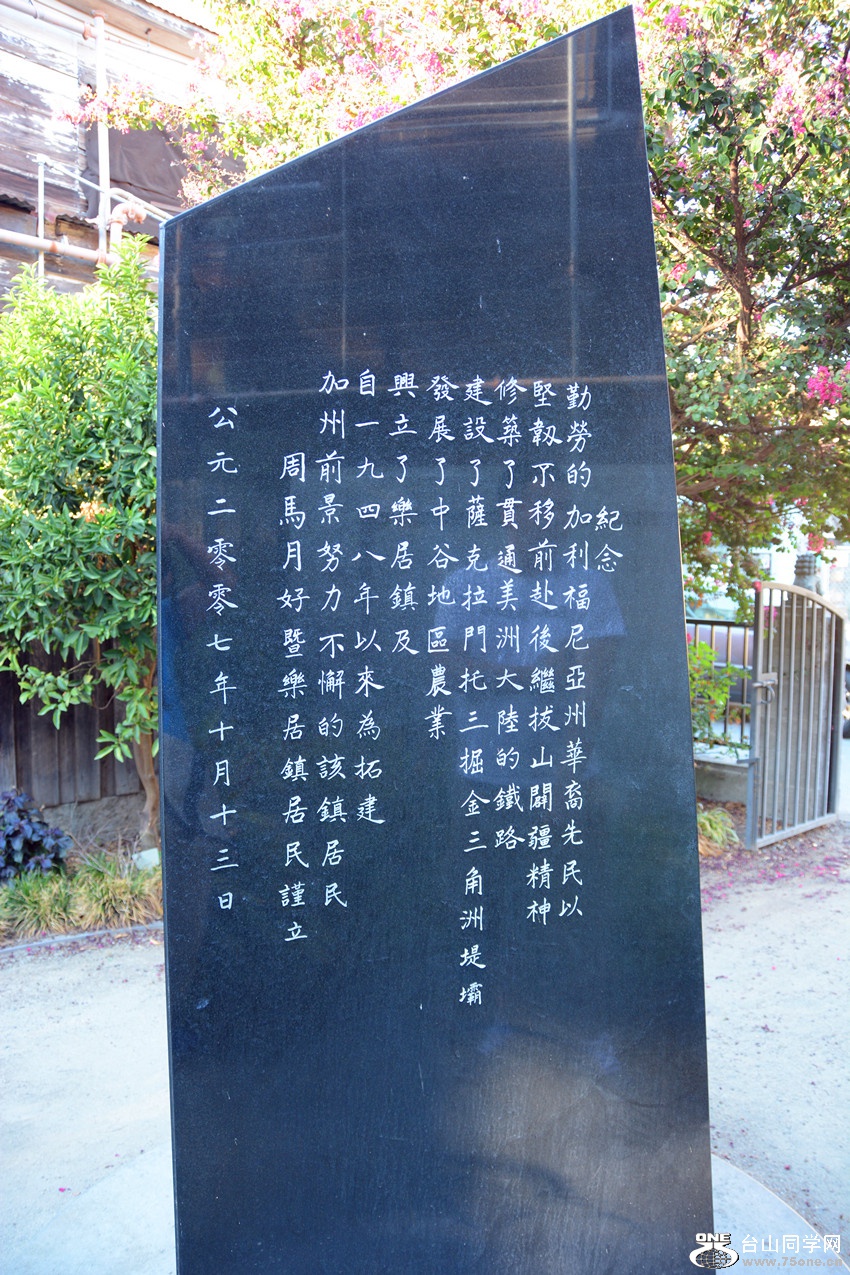 紀念
勤勞的加利福尼亞州華裔先民以
堅韌不移前赴後繼拔山闢疆精神
修築了貫通美洲大陸的鐵路
建設了薩克拉門托三掘金三角洲堤壩
發展了中谷地區農業
興立了樂居鎮及
自一九四八年以來為拓建
加州前景努力不懈的該鎮居民
周馬月好暨樂居鎮居民謹立
公元二零零七年十月十三日
ONE 台山同学网
www.75one.cn